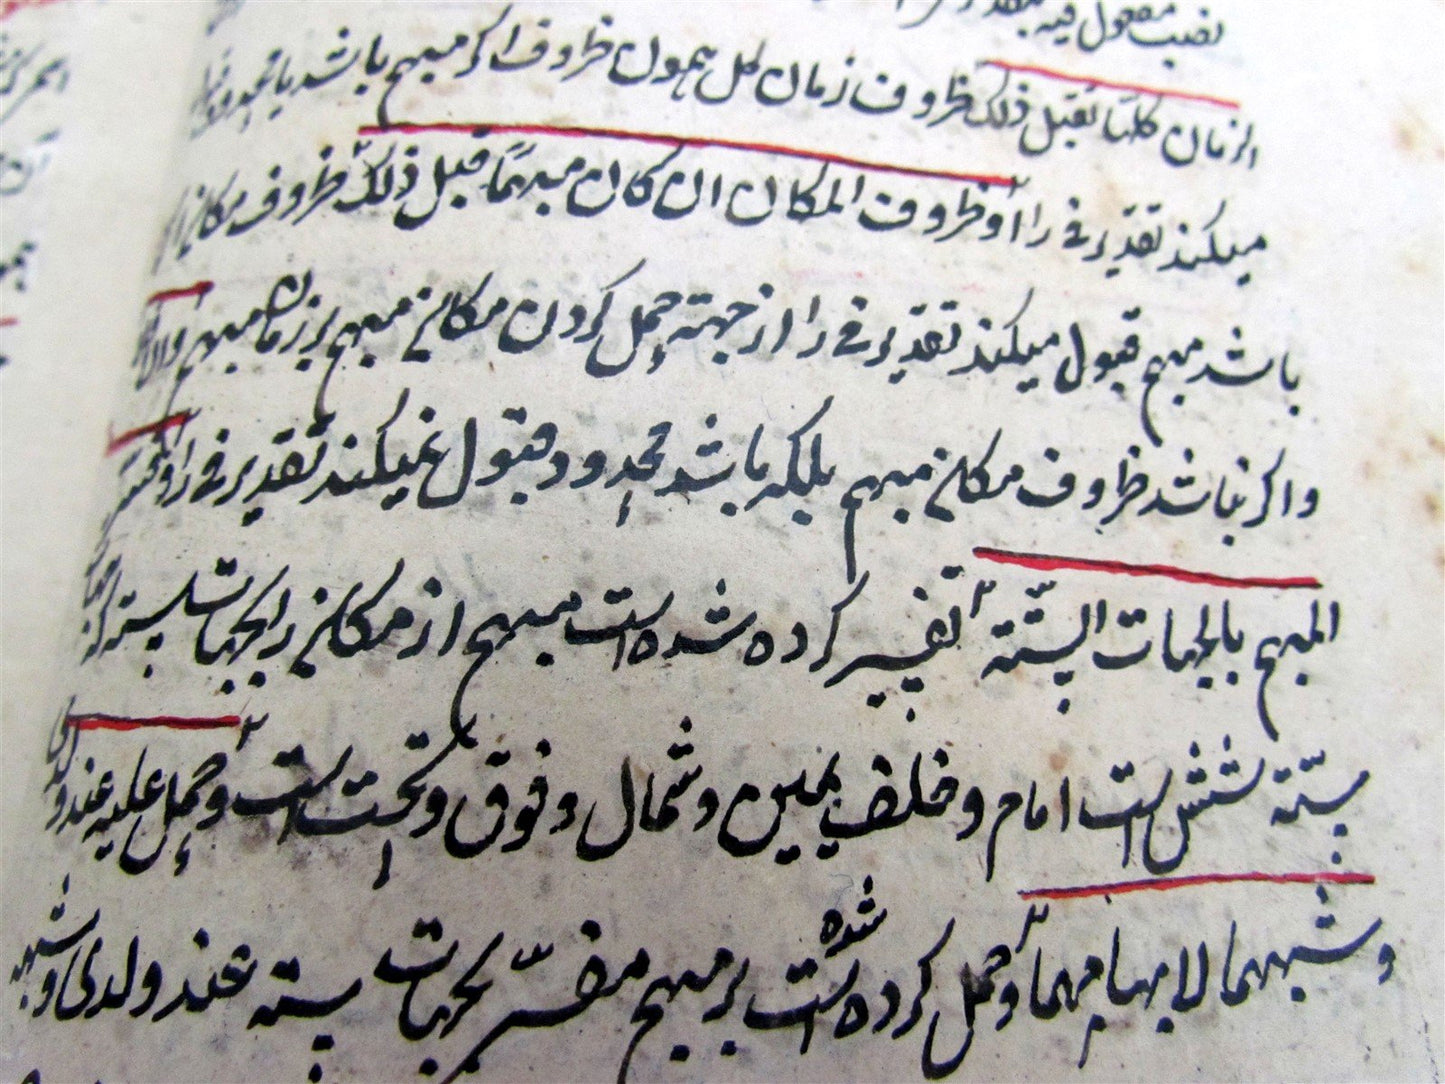 نصب مفعول فیه
الزمان کلها تقبل ذلک ظروف زمان کل همون ظروف اکر مبهم باشد یا محدود
میکند تقدیر فی را وظروف المکان ان کان مبهمًا قبل ذلک ظروف مکانی
باشد مبهم قبول میکند تقدیر فی را از جهته حمل کردن مکانی مبهم بر زمان مبهم والا
واکر نباشد ظروف مکانی مبهم بلکه باشد محدود قبول نمیکند تقدیر فی را وفسّر
المبهم بالجهات الستّة تفسیر کرده شده است مبهم از مکانی را بجهات سته
ستّه شش است امام وخلف یمین وشمال وفوق وتحت است وحمل علیه عند
وشبههما لابهامهما وحمل کرده شده است بر مبهم مفسّر بجهات سته عند ولدی وشبه